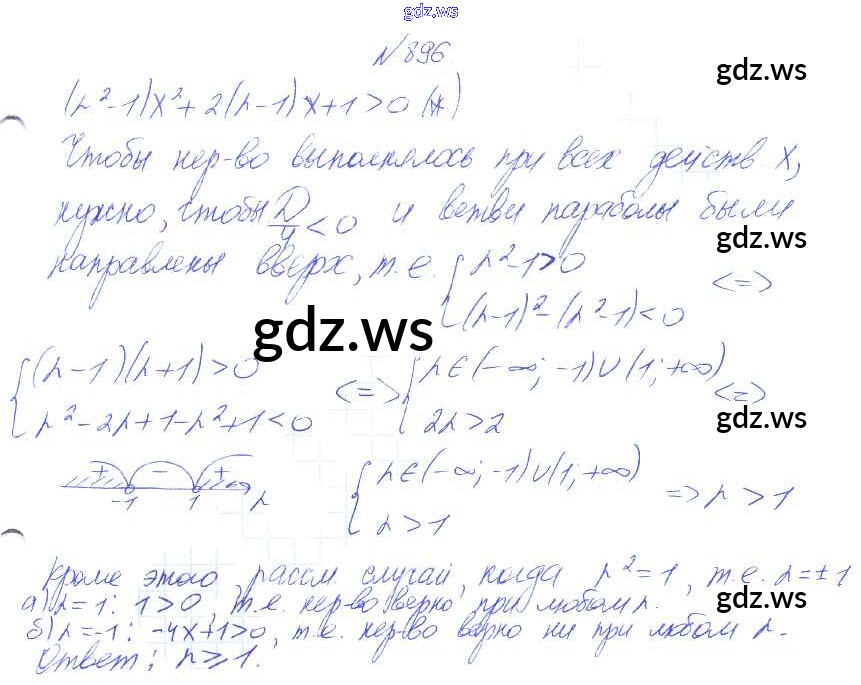 gdz.ws
№896.
gdz.ws
(r²-1)x²+2(r-1)x+1>0 (*)
Чтобы нер-во выполнялось при всех действ x,
нужно, чтобы D/4<0 и ветви параболы были
направлены вверх, т.е. { r²-1>0
(r-1)²-(r²-1)<0 <=>
gdz.ws
gdz.ws
{ (r-1)(r+1)>0
r²-2r+1-r²+1<0 <=>
{ r∈(-∞;-1)∪(1;+∞)
2r>2 <=>
gdz.ws
+ - +
-1 1 r
{ r∈(-∞;-1)∪(1;+∞)
r>1 => r>1
Кроме этого, рассм. случай, когда r²=1, т.е. r=±1
а) r=1: 1>0, т.е. нер-во верно при любом r.
gdz.ws
б) r=-1: -4x+1>0, т.е. нер-во верно ни при любом r.
Ответ: r⩾1.
gdz.ws